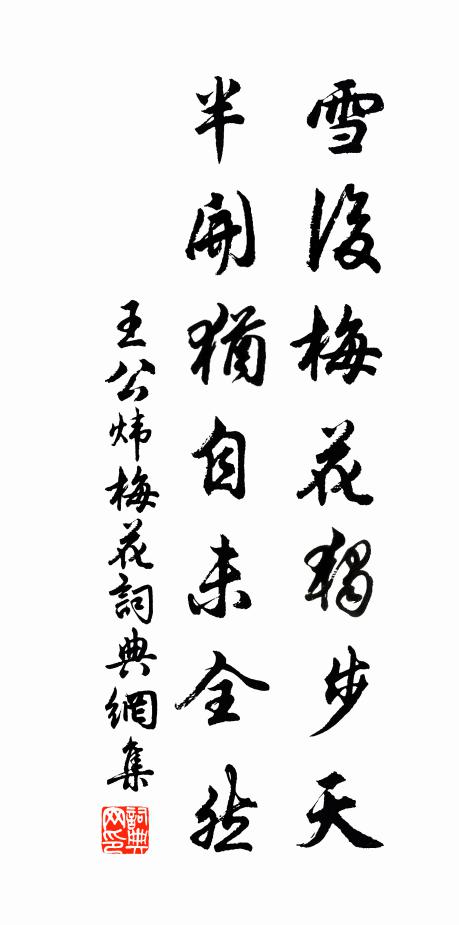 雪後梅花獨步天
半開猶自未全然
王公炜梅花詞典網集
詞典网印